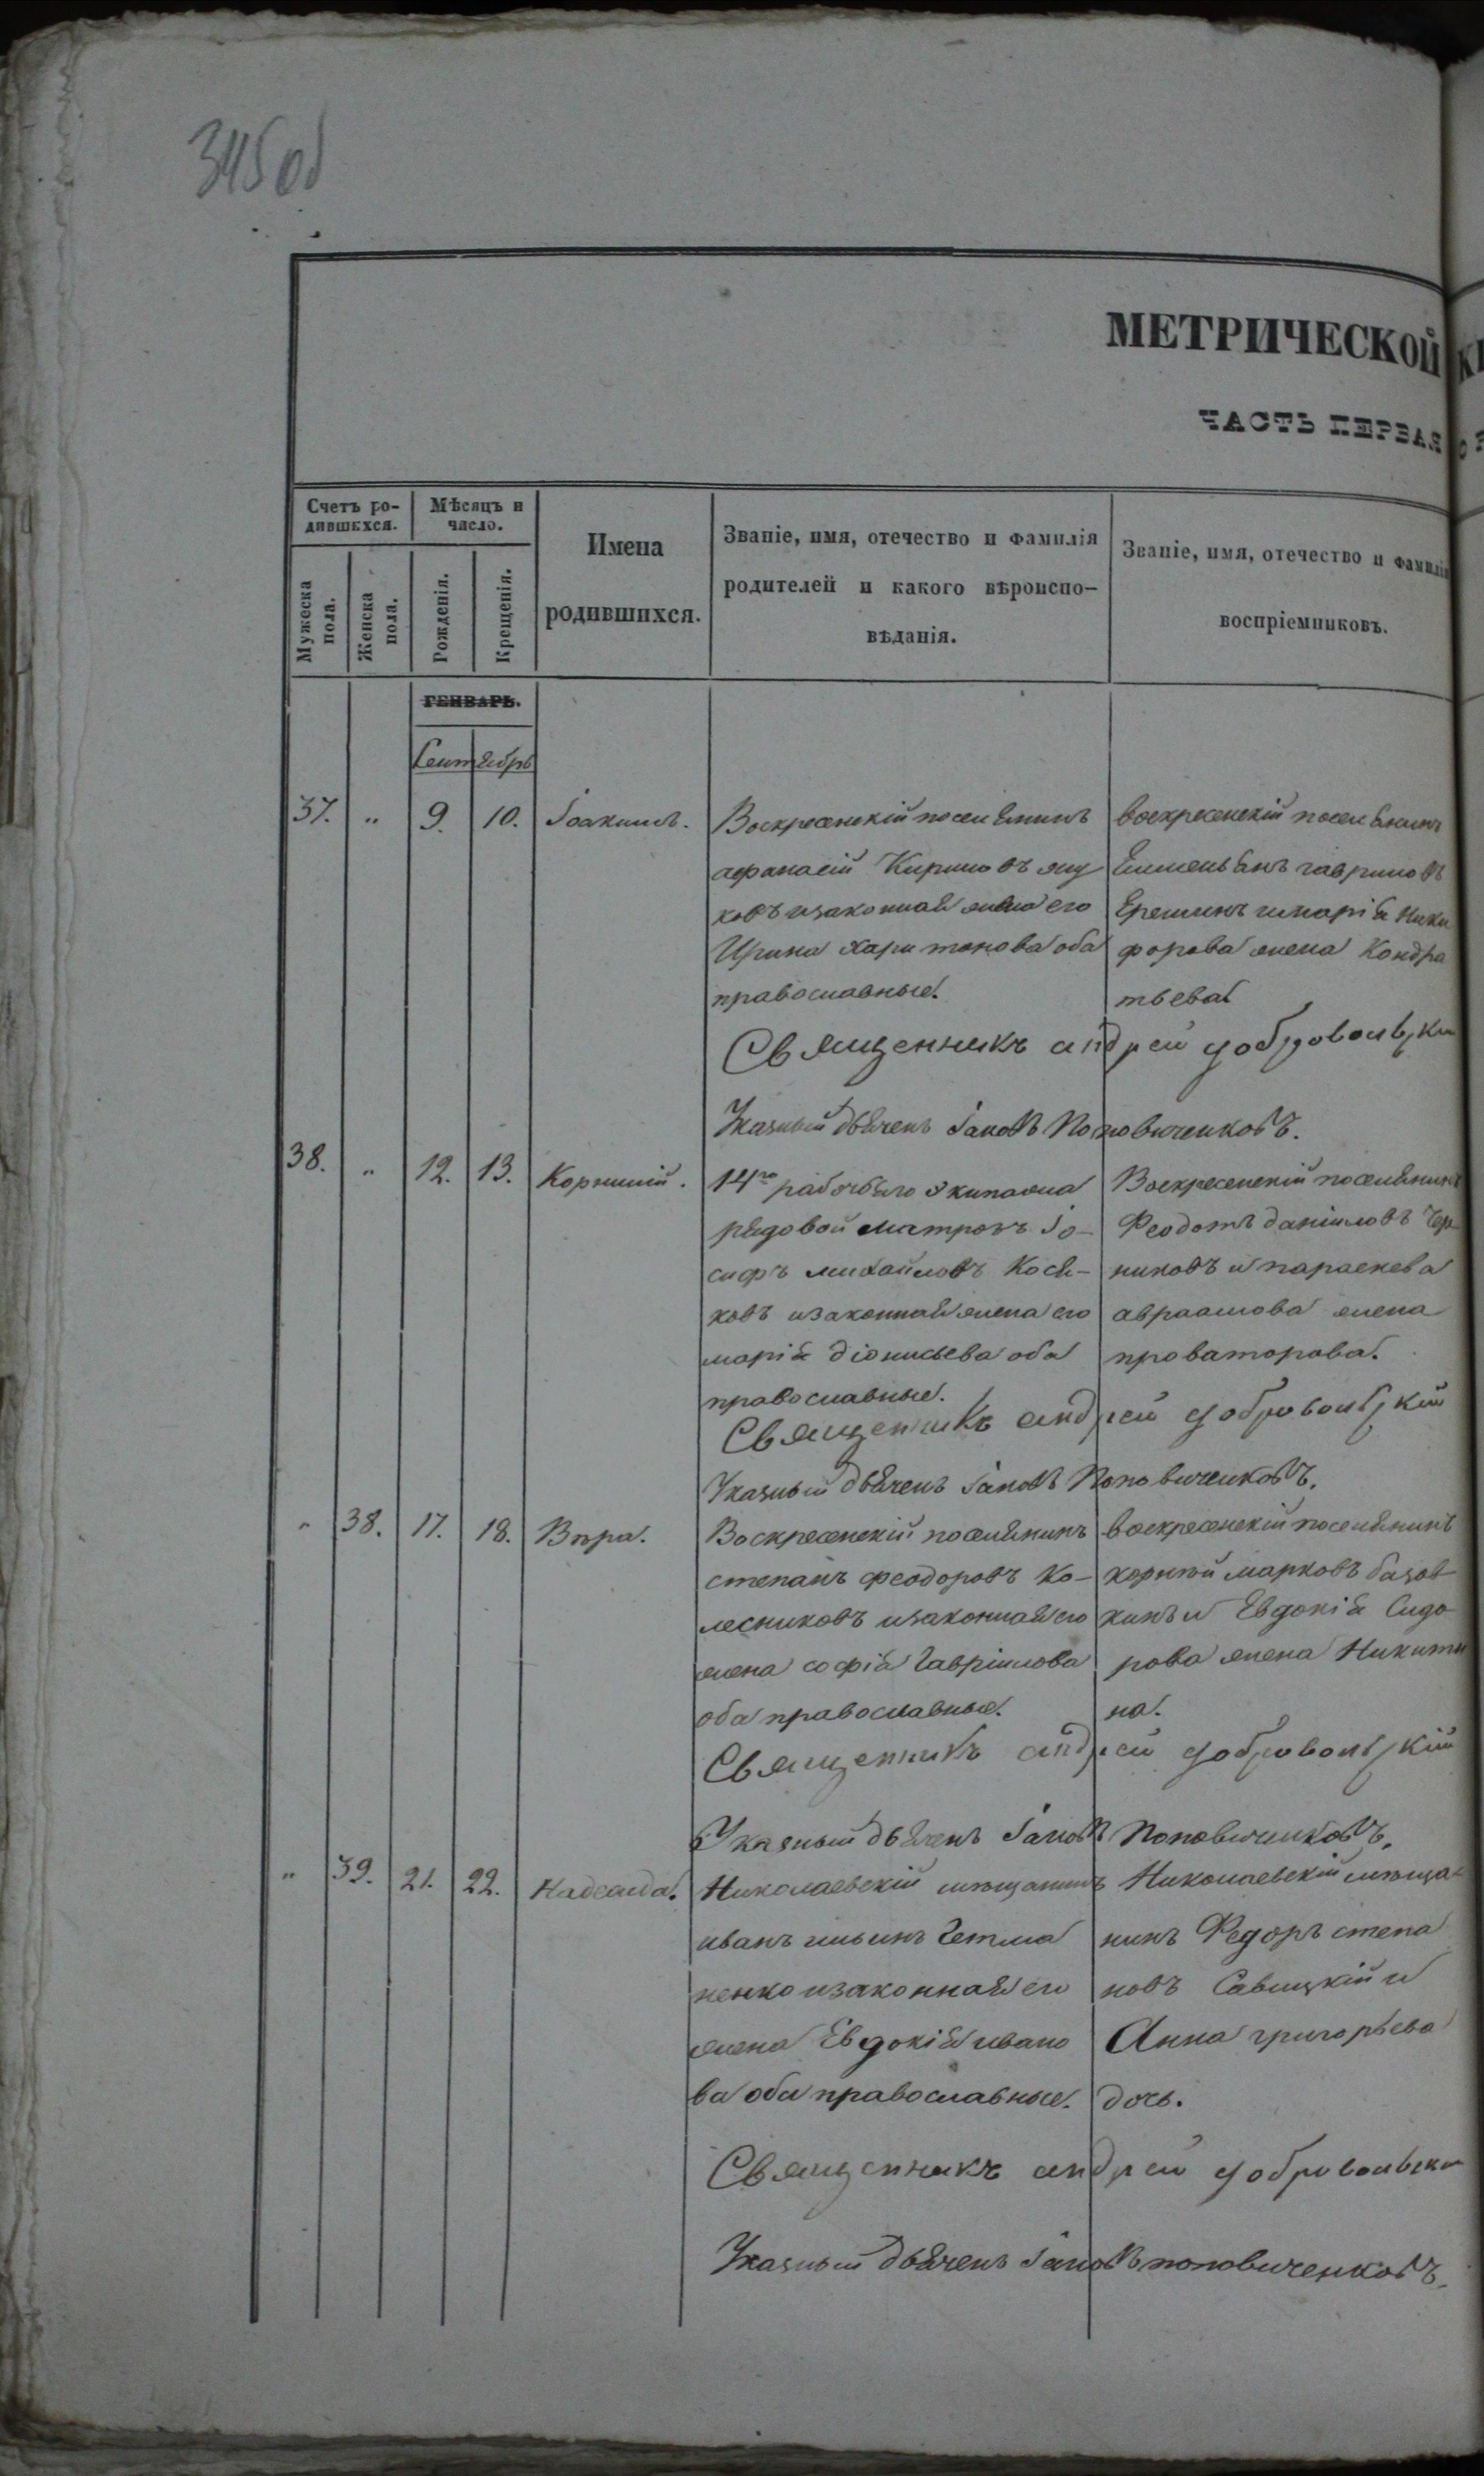 345 об
МЕТРИЧЕСКОЙ
ЧАСТЬ ПЕРВАЯ
Счетъ ро-
дившихся.
Мѣсяцъ и
число.
Мужеска
пола.
Женска
пола.
Рожденія.
Крещенія.
Имена
родившихся.
Званіе, имя, отечество и фамилія
родителей и какого вѣроиспо-
вѣданія.
Званіе, имя, отечество и фамилія
воспріемниковъ.
ГЕНВАРЬ.
Сентябрь
37. " 9. 10. Іоакимъ.
Воскресенскій поселянинъ
афанасій Кириловъ
ковъ изаконная жена его
Ирина Харитонова оба
православные.
воскресенскій поселянинъ
Емельянъ гавриловъ
Ерешинъ имарія Ники
форова жена Кондра
тьева.
Священникъ андрей добровольски
Указный дьячекъ Іаковъ Поповиченковъ.
38. " 12. 13. Корнилій.
14го рабочего экипажа
рядовой матрозъ Іо-
сифъ михайловъ Кося-
ковъ изаконная жена его
марія діонисьева оба
православные.
Воскресенскій поселянинъ
Феодотъ даніиловъ Чер
никовъ и параскева
авраамова жена
проваторова.
Священникъ андрей добровольскій
Указный дьячекъ Іаковъ Поповиченковъ.
" 38. 17. 18. Вѣра.
Воскресенскій поселянинъ
степанъ феодоровъ Ко-
лесниковъ изаконная его
жена софія Гавріилова
оба православные.
воскресенскій поселянинъ
корнѣй марковъ базов
кинъ и Евдокія Сидо
рова жена Никити
на.
Священникъ андрей добровольскій
Указный дьячекъ Іаковъ Поповиченковъ.
" 39. 21. 22. Надежда.
Николаевскій мѣщанинъ
иванъ ильинъ Гетма
ненко изаконная его
жена Евдокія ивано
ва оба православные.
Николаевскій мѣща
нинъ Федоръ степа
новъ Савицкій и
Анна григорьева
дочь.
Священникъ андрей добровольски
Указный дьячекъ Іаковъ поповиченковъ.